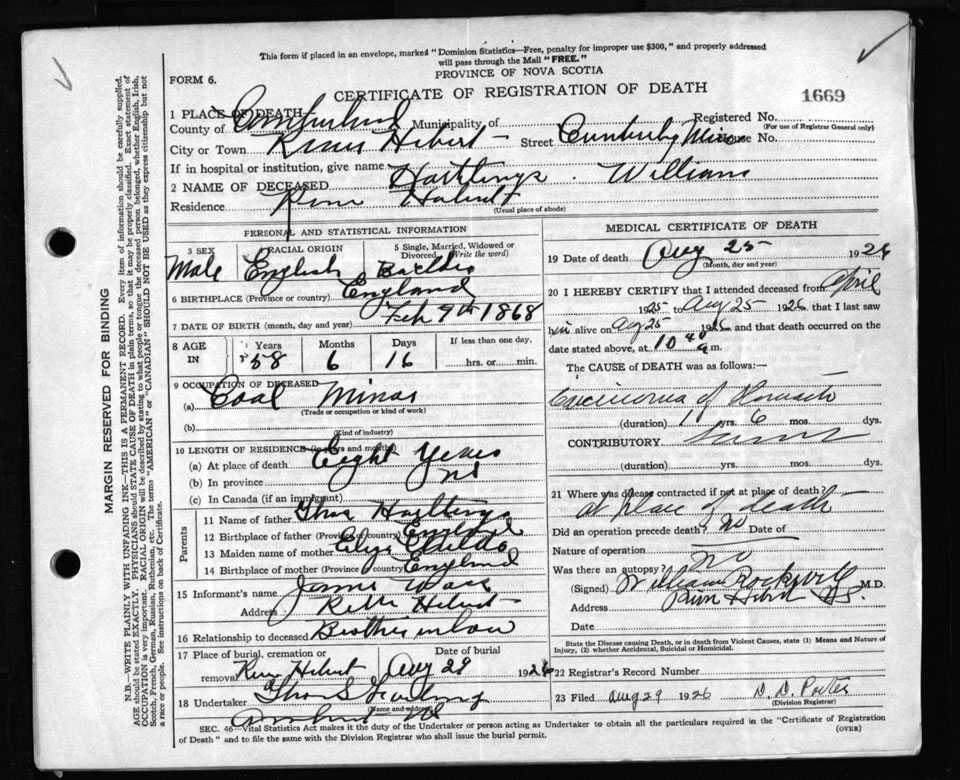 This form if placed in an envelope, marked "Dominion Statistics—Free, penalty for improper use $300," and properly addressed
will pass through the Mail "FREE."
PROVINCE OF NOVA SCOTIA
FORM 6.
CERTIFICATE OF REGISTRATION OF DEATH
1669
1 PLACE OF DEATH
County of Cumberland Municipality of Registered No.
(For use of Registrar General only)
City or Town River Hebert Street House No.
If in hospital or institution, give name
2 NAME OF DECEASED Hastings William
Residence River Hebert
(Usual place of abode)
PERSONAL AND STATISTICAL INFORMATION
3 SEX 4 RACIAL ORIGIN 5 Single, Married, Widowed or Divorced (Write the word)
Male English
6 BIRTHPLACE (Province or country) England
7 DATE OF BIRTH (month, day and year) Feb 9th 1868
8 AGE IN Years Months Days If less than one day,
58 6 16 hrs. or min.
9 OCCUPATION OF DECEASED
(a) Coal Miner
(Trade or occupation or kind of work)
(b)
(Kind of industry)
10 LENGTH OF RESIDENCE (in years and months)
(a) At place of death Eight Years
(b) In province
(c) In Canada (if an immigrant)
Parents
11 Name of father Thos Hastings
12 Birthplace of father (Province or country) England
13 Maiden name of mother
14 Birthplace of mother (Province or country) England
15 Informant's name James
Address River Hebert
16 Relationship to deceased Brother in law
17 Place of burial, cremation or removal Date of burial
River Hebert Aug 29 1926
18 Undertaker
(Name and address)
Amherst NS
MEDICAL CERTIFICATE OF DEATH
19 Date of death Aug 25 1926
(Month, day and year)
20 I HEREBY CERTIFY that I attended deceased from April
25 to Aug 25 1926 that I last saw
him alive on Aug 25 1926 and that death occurred on
date stated above, at 10 40 a.m.
The CAUSE of DEATH was as follows:—
Carcinoma of Stomach
(duration) 1 yrs. 6 mos. dys.
CONTRIBUTORY
(duration) yrs. mos. dys.
21 Where was disease contracted if not at place of death?
at place of death
Did an operation precede death? no Date of
Nature of operation
Was there an autopsy? no
(Signed) William Rockwell M.D.
Address River Hebert NS.
Date
State the Disease causing Death, or in death from Violent Causes, state (1) Means and Nature of
Injury, (2) whether Accidental, Suicidal or Homicidal.
22 Registrar's Record Number
23 Filed Aug 29 1926 D. D. Porter
(Division Registrar)
SEC. 46—Vital Statistics Act makes it the duty of the Undertaker or person acting as Undertaker to obtain all the particulars required in the "Certificate of Registration
of Death" and to file the same with the Division Registrar who shall issue the burial permit.
(OVER)
MARGIN RESERVED FOR BINDING
N.B.—WRITE PLAINLY WITH UNFADING INK—THIS IS A PERMANENT RECORD. Every item of information should be carefully supplied.
AGE should be stated EXACTLY. PHYSICIANS should STATE CAUSE OF DEATH in plain terms, so that it may be properly classified. Exact statement of
OCCUPATION is very important. RACIAL ORIGIN will be described by stating to what people or tongue the deceased person belonged, whether English, Irish,
Scotch, French, German, Russian, Ruthenian, etc. The terms "AMERICAN" or "CANADIAN" SHOULD NOT BE USED as they express citizenship but not
a race or people. See instructions on back of Certificate.